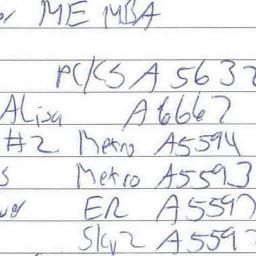 ME MBA
PC/CS A 5632
Alisa A6667
#2 Metro A5594
s Metro A5593
ER A5597
Sky2 A5592